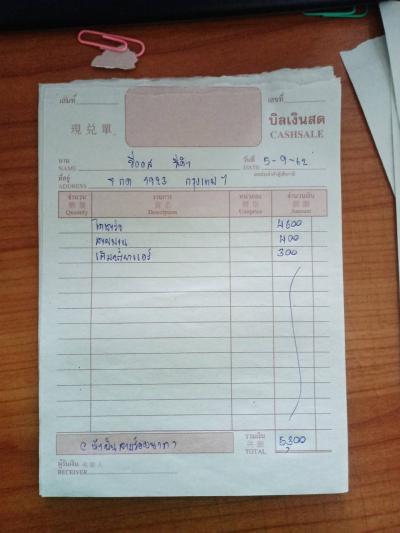 เล่มที่ เลขที่
現兑單 บิลเงินสด
CASHSALE
นาม
NAME วันที่ 5-9-62
DATE
ที่อยู่ กต 1923 กรุงเทพฯ
ADDRESS
จำนวน รายการ หน่วยละ จำนวนเงิน
Quantity Description Unitprice Amount
ไดชาร์จ 4600
สายพาน 400
เติมน้ำยาแอร์ 300
(ห้าพันสามร้อยบาท) รวมเงิน 5300
TOTAL
ผู้รับเงิน
RECEIVER